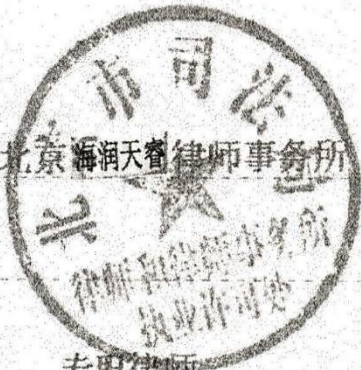 北京市司法局
北京海润天睿律师事务所
律师和律师事务所
执业许可处
专职律师